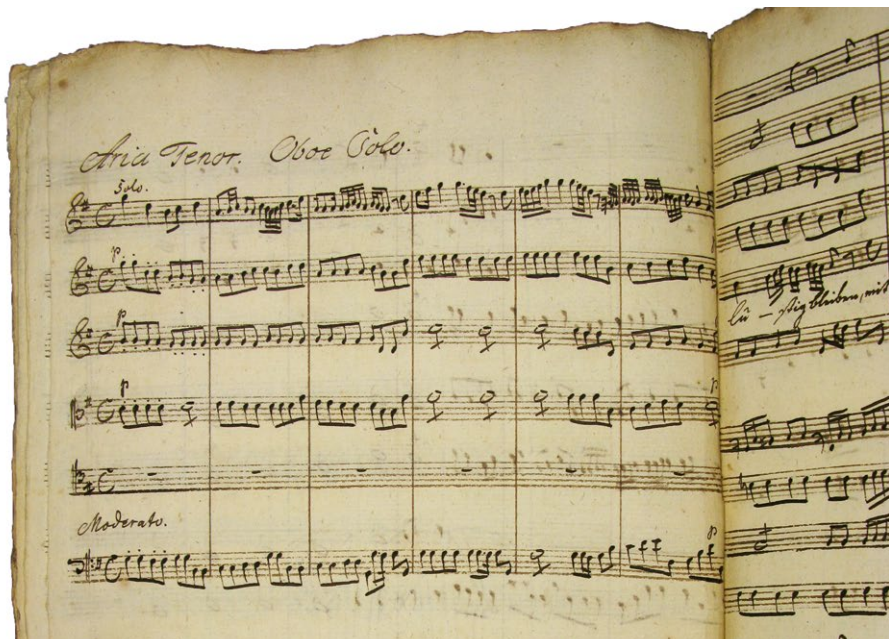 Aria Tenor. Oboe Solo.
Solo.
p
p
p
p
Moderato.
p
bleiben, mit